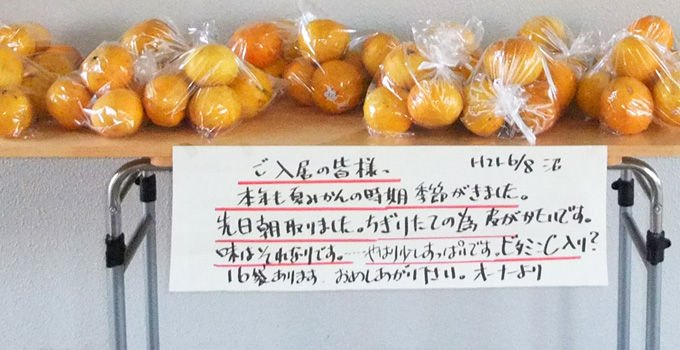 ご入居の皆様、 H21.6/8
本年も夏みかんの時期 季節がきました。
先日朝取りました。ちぎりたての為 皮がかたいです。
味はそれなりです。……やはり少しすっぱいです。ビタミンC入り?
16袋あります おめしあがり下さい。オーナーより